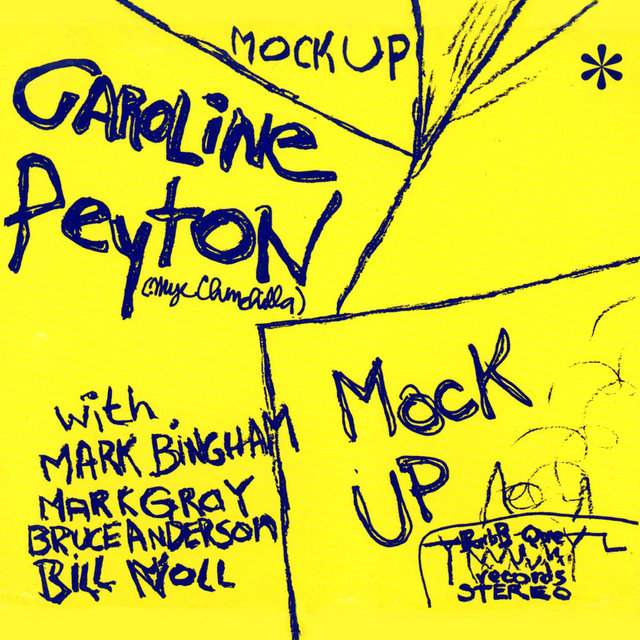 MOCK UP
*
CAROLINE
PEYTON
with
MARK BINGHAM
MARK GRAY
BRUCE ANDERSON
BILL NOLL
MOCK
UP
records
STEREO